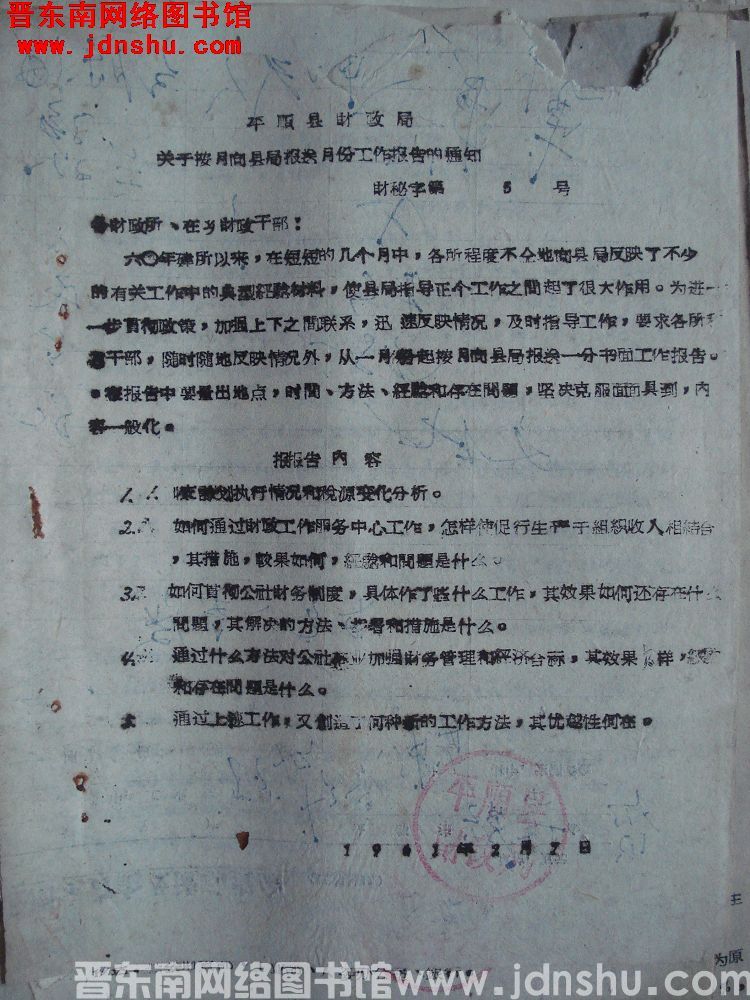 晋东南网络图书馆
www.jdnshu.com
平顺县财政局
关于按月向县局报送月份工作报告的通知
财秘字第 5 号
财政所、在乡财政干部！
六〇年建所以来，在短短的几个月中，各所程度不仝地向县局反映了不少
的有关工作中的典型経驗材料，使县局指导正个工作之間起了很大作用。为进一
步貫彻政策，加强上下之間联系，迅速反映情况，及时指导工作，要求各所
干部，随时随地反映情况外，从一月份起按月向县局报送一分书面工作报告。
报告中要量出地点，时間、方法、経驗和存在問題，坚决克服面面具到，内
容一般化。
报报告内容
1. 收計划执行情况和税源变化分析。
2. 如何通过財政工作服务中心工作，怎样使促行生产于組織收入相結合
，其措施，效果如何，経驗和問題是什么。
3. 如何貫彻公社財务制度，具体作了些什么工作，其效果如何还存在什么
問題，其解决的方法、部署和措施是什么。
4. 通过什么方法对公社企业加强財务管理和経济合祘，其效果怎样，経驗
和存在問題是什么。
通过上述工作，又創造了何种新的工作方法，其优越性何在。
平顺县
財政局
1961年2月7日
主
为原
晋东南网络图书馆 www.jdnshu.com